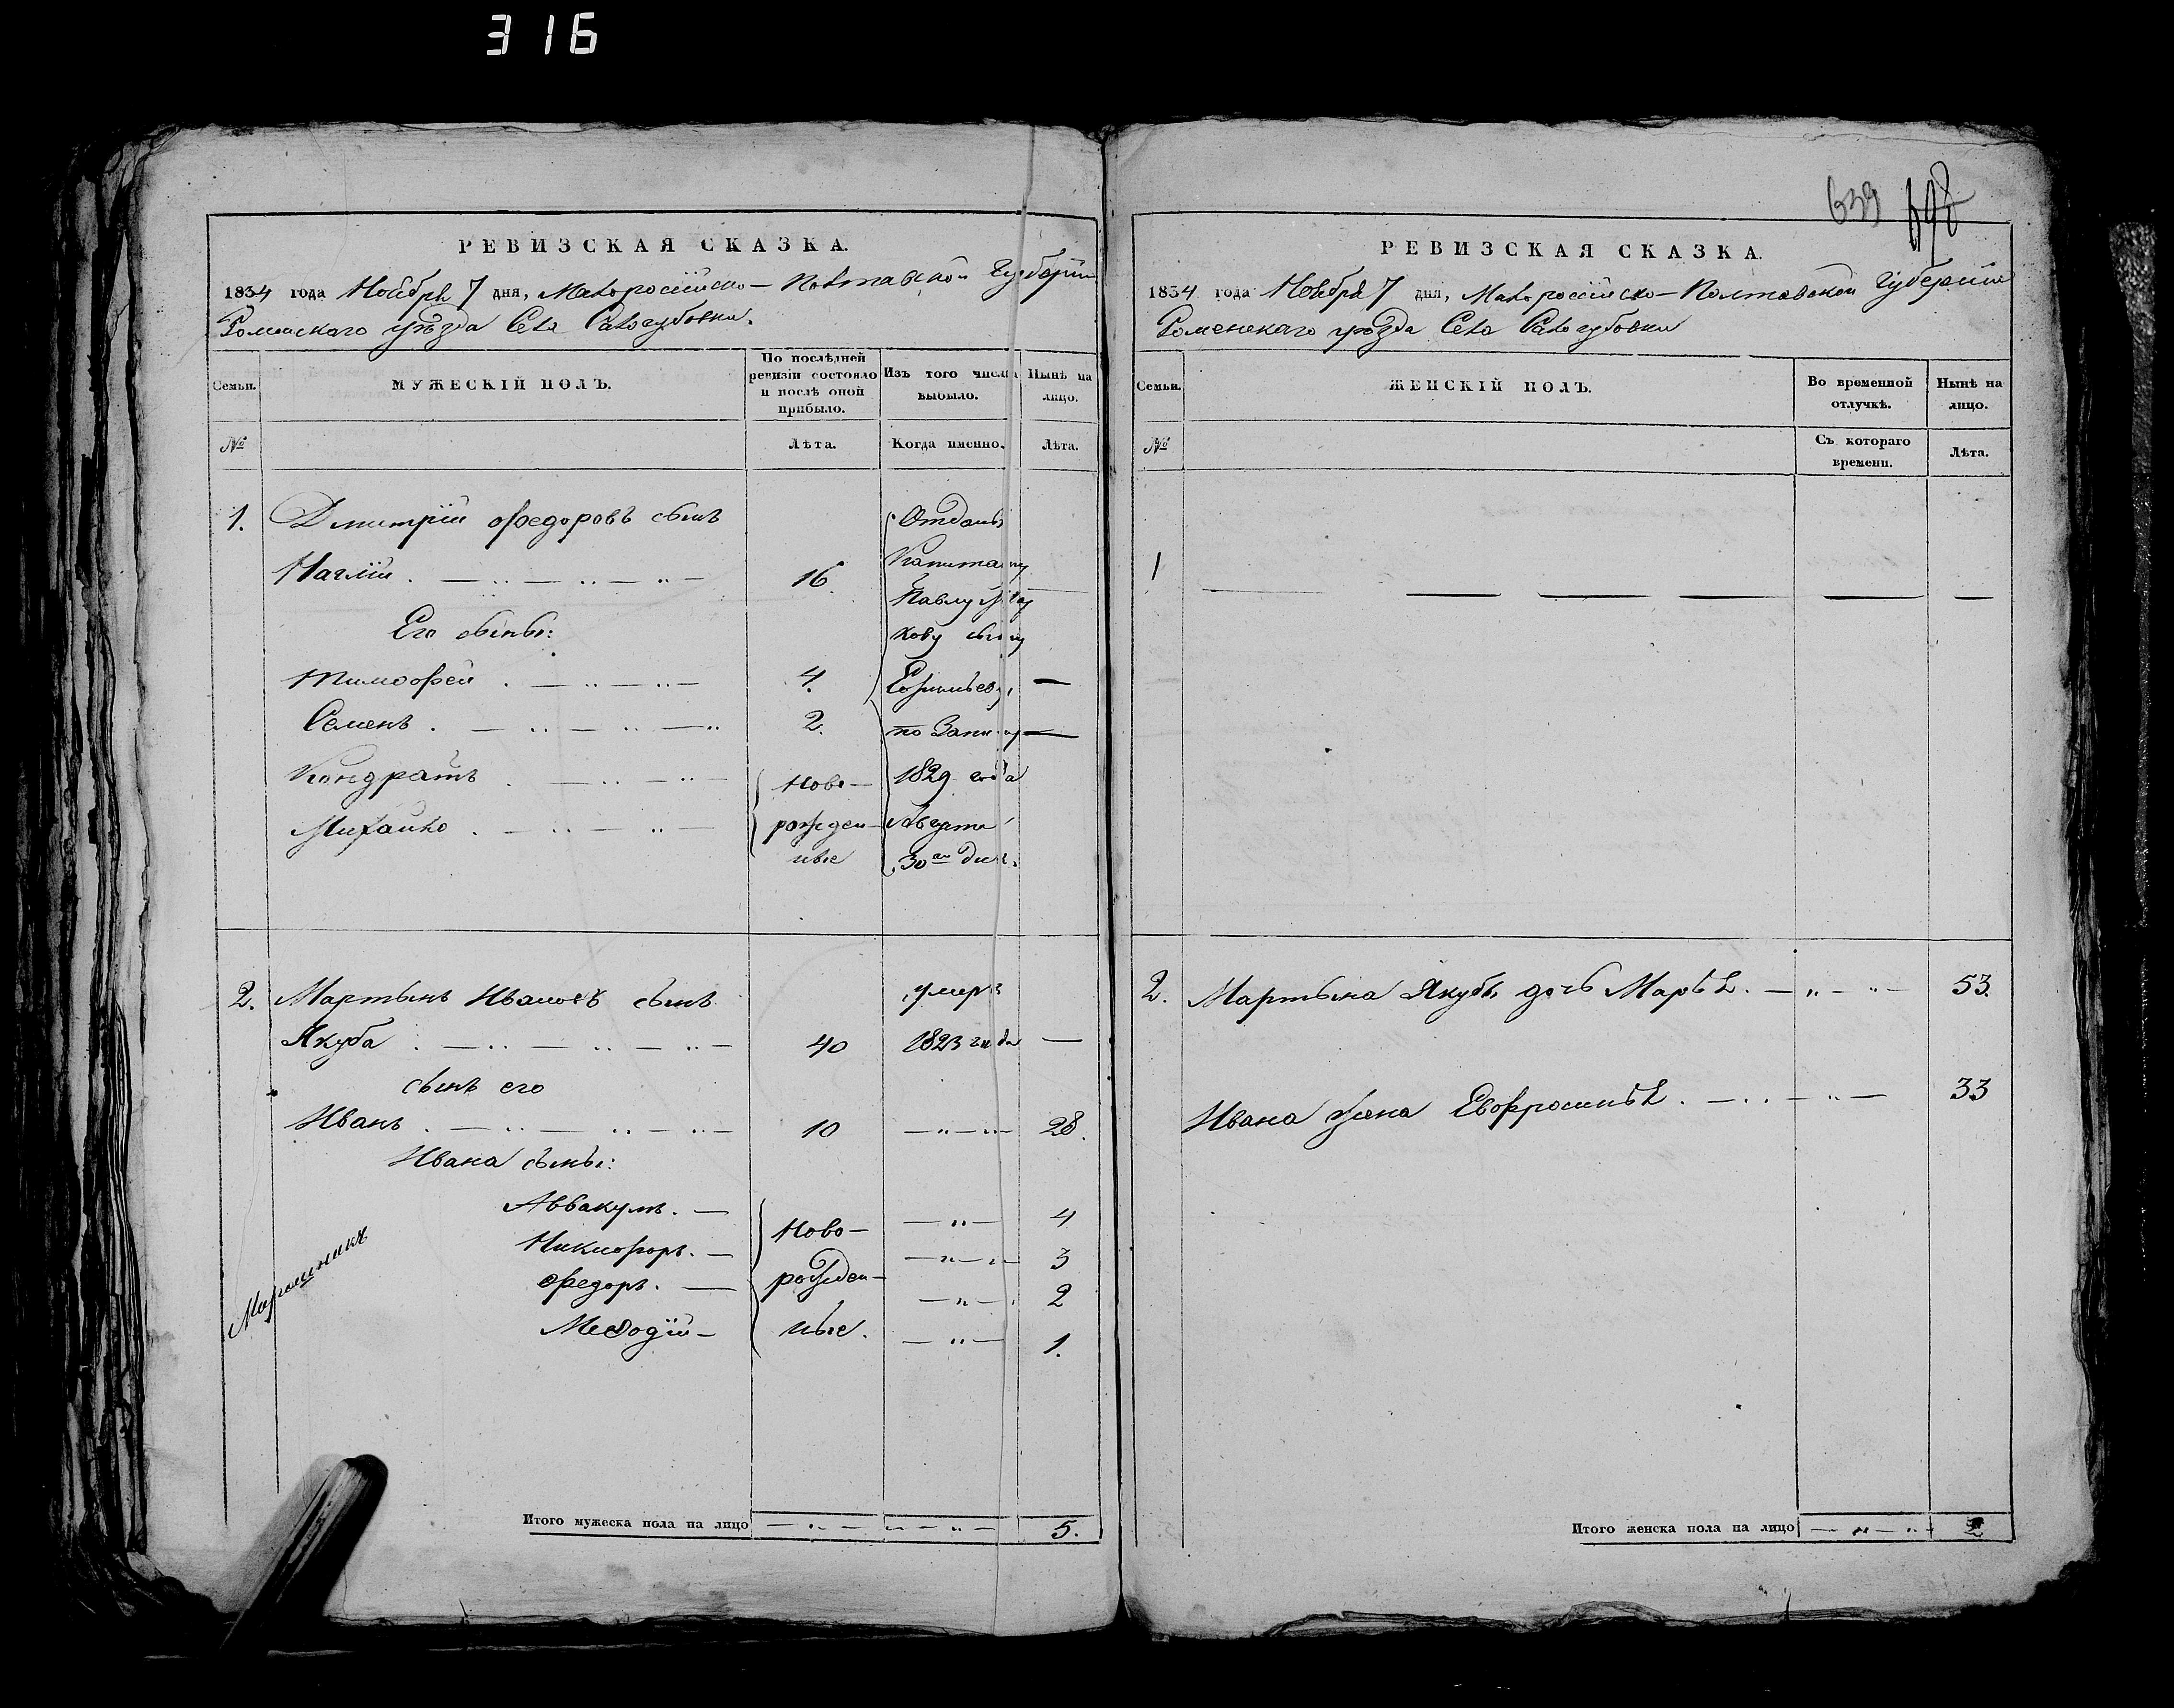 316
РЕВИЗСКАЯ СКАЗКА.
1834 года Ноября 7 дня, Малоросійско-Полтавской Губерніи
Роменскаго уѣзда Села Салогубовки.
Семьи.
МУЖЕСКІЙ ПОЛЪ.
По послѣдней ревизіи состояло и послѣ оной прибыло.
Изъ того числа выбыло.
Нынѣ на лицо.
№
Лѣта.
Когда именно.
Лѣта.
1. Дмитрій Федоровъ сынъ Отданъ
16. Капитану
Павлу
Его сыны: кову сыну
Тимофей . 4. —
Семенъ . 2. по —
Кондратъ . Ново- 1829 года
Михайло . рожден- Августа
ные 30го дня.
2. Мартынъ Ивановъ сынъ умеръ
Якуба . 40 1823 года —
сынъ его
Иванъ . 10 28.
Ивана сыны:
Аввакумъ. — Ново- 4
Никифоръ. — 3
Федоръ. — рожден- 2
Мефодій — ные. 1.
Итого мужеска пола на лицо 5.
639 698
РЕВИЗСКАЯ СКАЗКА.
1834 года Ноября 7 дня, Малоросійско-Полтавской Губерніи
Роменскаго уѣзда Села Салогубовки
Семьи.
ЖЕНСКІЙ ПОЛЪ.
Во временной отлучкѣ.
Нынѣ на лицо.
№
Съ котораго времени.
Лѣта.
1
2. Мартына Якубы дочь 53.
Ивана жена 33
Итого женска пола на лицо 2